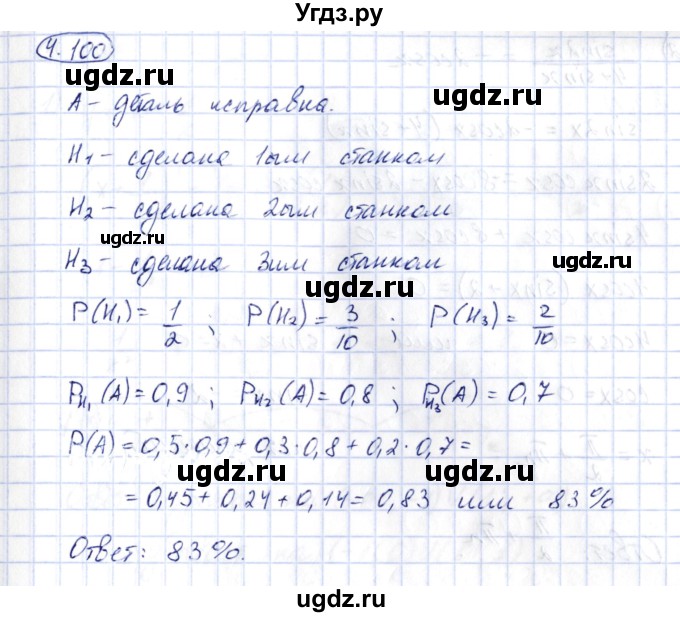 Угдз.ру
4.100
ugdz.ru
ugdz.ru
А – деталь исправна.
H1 – сделана 1ым станком
ugdz.ru
H2 – сделана 2ым станком
ugdz.ru
H3 – сделана 3им станком
ugdz.ru
P(H₁) = 1/2 ; P(H₂) = 3/10 ; P(H₃) = 2/10
ugdz.ru
P_H₁(A) = 0,9 ; P_H₂(A) = 0,8 ; P_H₃(A) = 0,7
P(A) = 0,5·0,9 + 0,3·0,8 + 0,2·0,7 =
ugdz.ru
ugdz.ru
= 0,45 + 0,24 + 0,14 = 0,83 или 83%
ugdz.ru
Ответ: 83%.
ugdz.ru
ugdz.ru